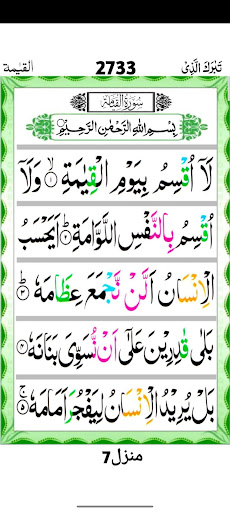 تَبٰرَكَ الَّذِىْ 2733 القيمة
سُوْرَةُ الْقِيٰمَة
بِسْمِ اللّٰهِ الرَّحْمٰنِ الرَّحِيْمِ
لَاۤ اُقْسِمُ بِيَوْمِ الْقِيٰمَةِ ۙ‏﴿۱﴾ وَلَاۤ
اُقْسِمُ بِالنَّفْسِ اللَّوَّامَةِ ؕ‏﴿۲﴾ اَيَحْسَبُ
الْاِنْسَانُ اَلَّنْ نَّجْمَعَ عِظَامَهٗ ؕ‏﴿۳﴾
بَلٰى قٰدِرِيْنَ عَلٰٓى اَنْ نُّسَوِّىَ بَنَانَهٗ‏﴿۴﴾
بَلْ يُرِيْدُ الْاِنْسَانُ لِيَفْجُرَ اَمَامَهٗ ۚ‏﴿۵﴾
منزل7